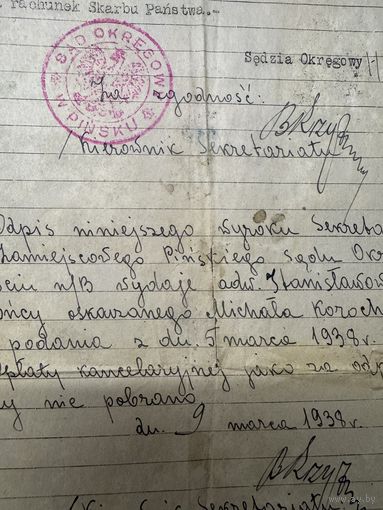 rachunek Skarbu Państwa.-
SĄD OKRĘGOWY
W PIŃSKU
Sędzia Okręgowy
Za zgodność:
Kierownik Sekretariatu
Odpis niniejszego wyroku Sekreta
Zamiejscowego Pińskiego Sądu Okr
ciu n/B wydaje adw. Stanisławow
ońcy oskarżonego Michała Koroch
podania z dn. 5 marca 1938 r.
opłaty kancelaryjnej jako za od
y nie pobrano
dn. 9 marca 1938 r.
Sekretariatu
av.by